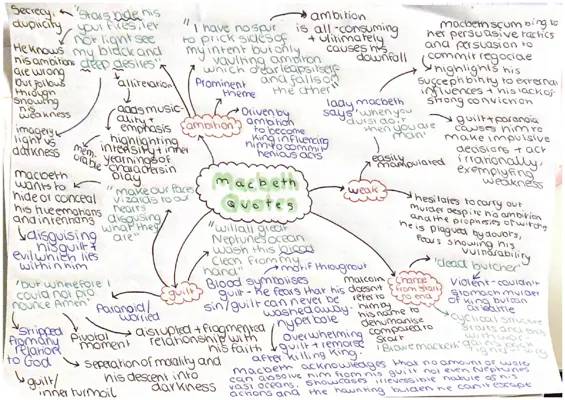 Macbeth
Quotes
ambition
"stars hide
your fires, let
not light see
my black and
deep desires"
Secrecy,
duplicity
He knows
his ambitions
are wrong
showing
his
weakness
imagery
light vs
darkness
alliteration
adds music-
ality +
emphasis
highlighting
intensity + inner
yearnings of
"I have no spur
to prick sides of
my intent but only
vaulting ambition
which o'erleaps itself
falls on
the other"
ambition
is all-consuming
+ ultimately
causes his
downfall
Prominent
theme
Driven by
ambition
to become
king influencing
him to commit
heinous acts
weak
easily
manipulated
lady macbeth
says "when you
durst do it then
you are
man"
to
her persuasive tactics
and persuasion to
commit regicide
highlights his
susceptibility to external
influences + his lack of
strong conviction
guilt + paranoia
causes him to
make impulsive
decisions + act
irrationally,
exemplifying
weakness
hesitates to carry out
murder despite his ambition
and the prophesies of witches
he is plagued by doubts,
showing his
vulnerability
Change
from start
to end
"dead butcher"
Violent -
murder
of king
cyclical structure
malcolm
doesn't
refer to
him by
his name to
compared to
start
'Brave macbeth'
guilt
"make our faces
vizards to our
hearts
disguising
what they
are"
macbeth
wants to
hide or conceal
his true emotions
and intentions
disguising
his guilt +
evil which lies
within him
"but wherefore
could not
Amen"
Stripped
from any
relation
to God
guilt/
inner turmoil
Pivotal
moment
Paranoid/
worried
disrupted + fragmented
relationship with
his faith
Separation of morality and
his descent into
darkness
"will all great
Neptune's ocean
wash this blood
Clean from my
hand"
motif throughout
Blood symbolises
guilt - he fears that his
sin/guilt can never be
washed away.
hyperbole
Overwhelming
guilt + remorse
after killing king.
macbeth acknowledges that no amount of water
can absolve him from his guilt not even Neptunes
vast oceans, showcases irreversible nature of his
actions and the haunting burden he cant escape